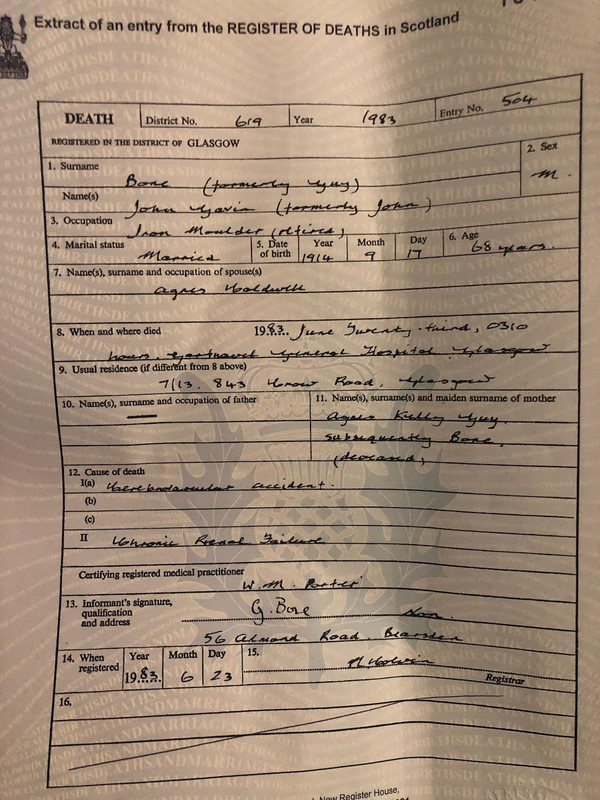 Extract of an entry from the REGISTER OF DEATHS in Scotland
DEATH District No. 619 Year 1983 Entry No. 504
REGISTERED IN THE DISTRICT OF GLASGOW
1. Surname 2. Sex
Bone (formerly Guy) M.
Name(s) John Gavin (formerly John)
3. Occupation
Iron Moulder (retired)
4. Marital status 5. Date of birth Year Month Day 6. Age
Married 1914 9 17 68 years.
7. Name(s), surname and occupation of spouse(s)
Agnes Coldwell
8. When and where died 1983. June Twenty-third, 0310
hours. Gartnavel General Hospital, Glasgow
9. Usual residence (if different from 8 above)
7/13, 843 Crow Road, Glasgow
10. Name(s), surname and occupation of father 11. Name(s), surname(s) and maiden surname of mother
— Agnes Kelly Guy.
subsequently Bone.
(deceased)
12. Cause of death
I(a) Cerebrovascular accident.
(b)
(c)
II Chronic Renal Failure
Certifying registered medical practitioner
W. M. Porter
13. Informant's signature, qualification and address
G. Bone Son.
56 Almond Road, Bearsden
14. When registered Year Month Day 15.
1983. 6 23
Registrar
16.
New Register House,